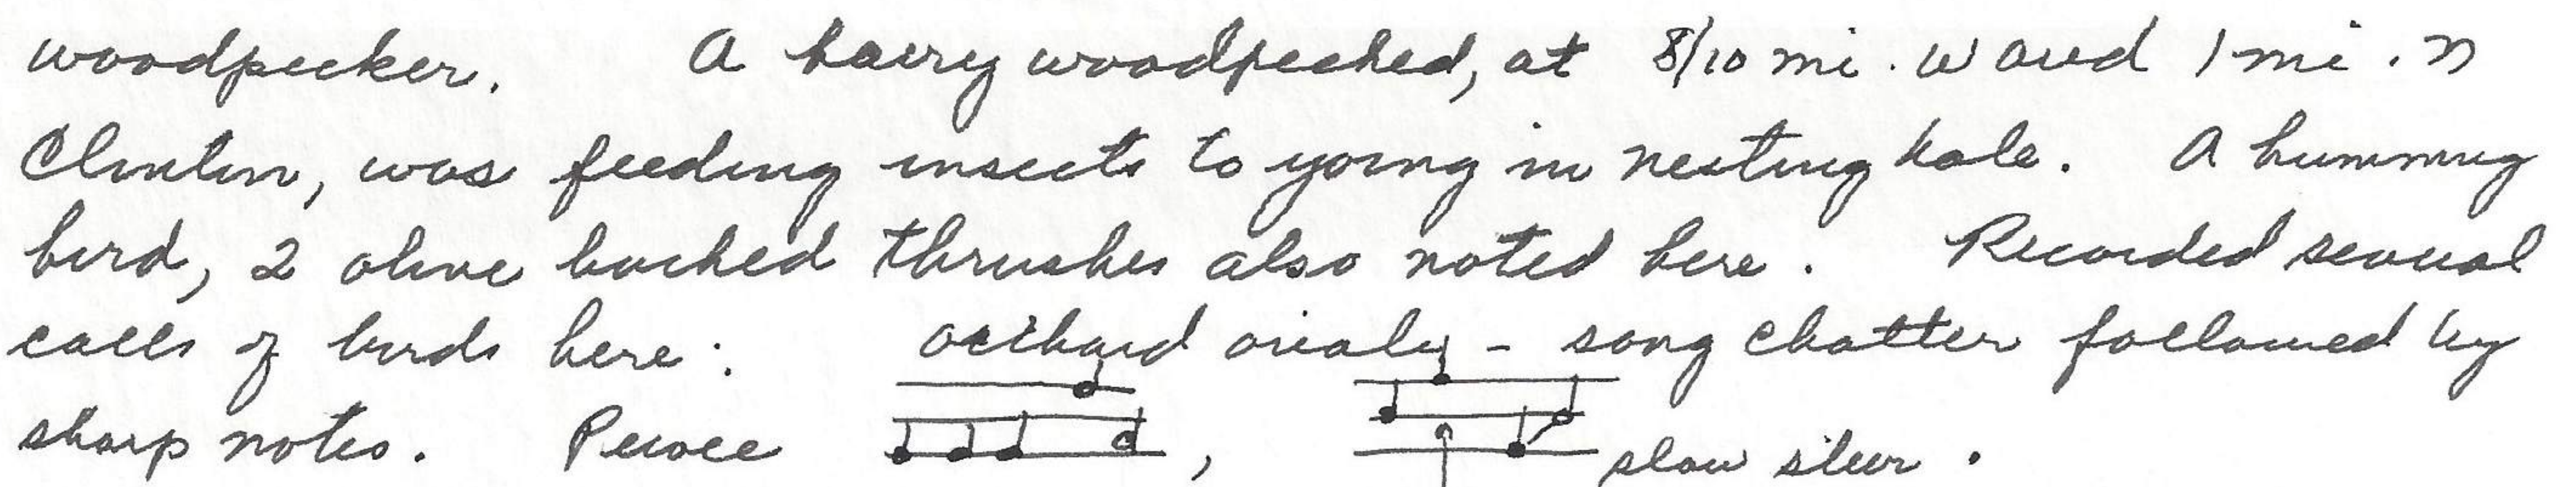 woodpecker. A hairy woodpecked, at 8/10 mi. W and 1 mi. N
Clinton, was feeding insects to young in nesting hole. A humming
bird, 2 olive backed thrushes also noted here. Recorded several
calls of birds here: orchard orioles - song chatter followed by
sharp notes. Pewee , slow slur.